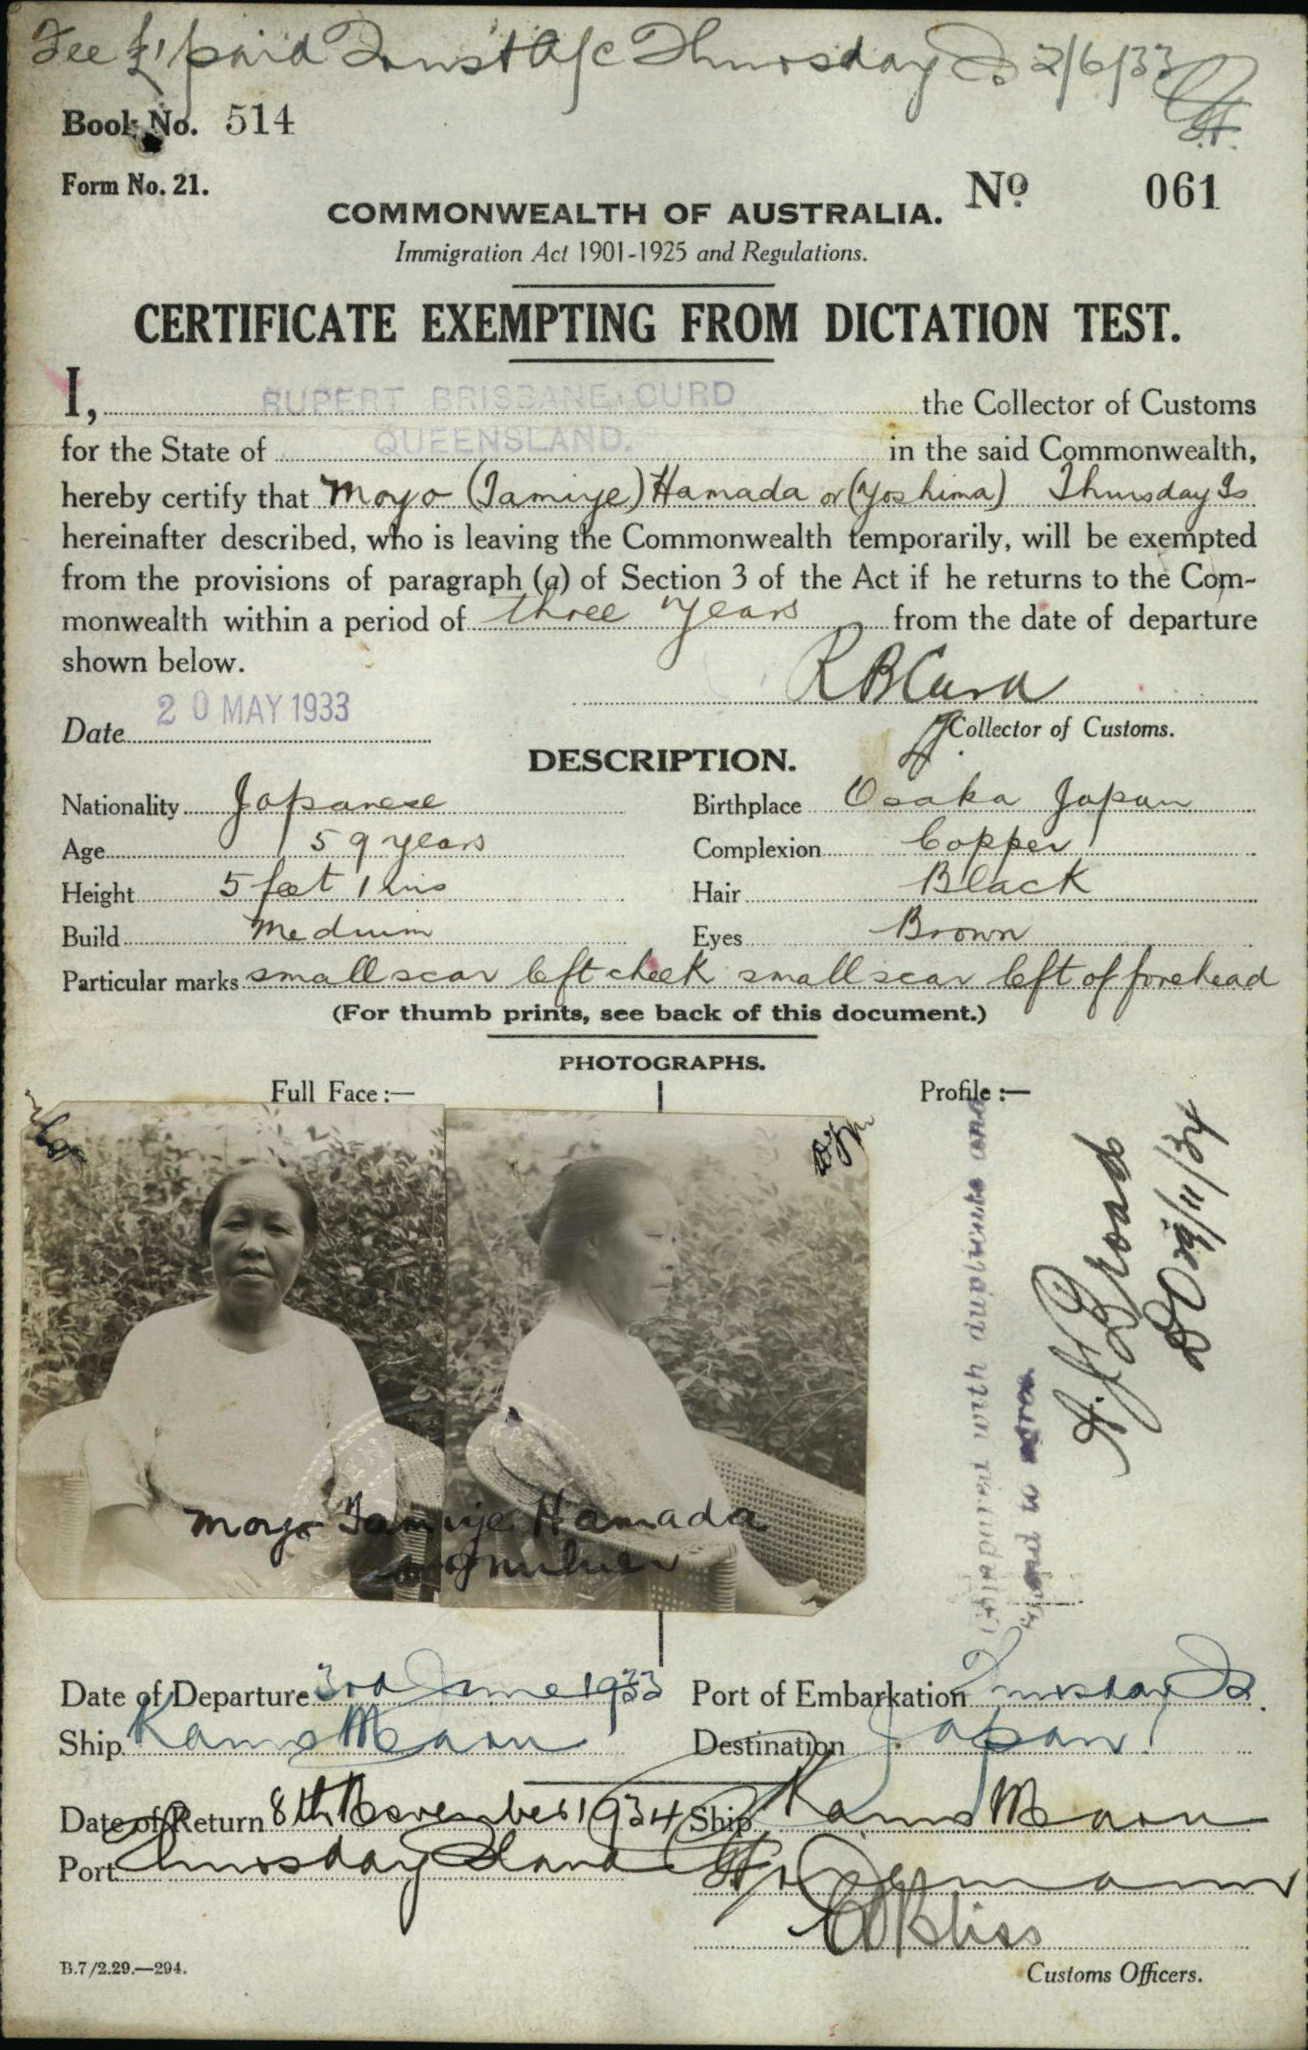 Fee £1 paid Trust A/c Thursday Is 2/6/33
Book No. 514
Form No. 21.
No. 061
COMMONWEALTH OF AUSTRALIA.
Immigration Act 1901-1925 and Regulations.
CERTIFICATE EXEMPTING FROM DICTATION TEST.
I, RUPERT BRISBANE CURD the Collector of Customs
for the State of QUEENSLAND. in the said Commonwealth,
hereby certify that Moyo (Tamiye) Hamada or (Yoshima) Thursday Is
hereinafter described, who is leaving the Commonwealth temporarily, will be exempted
from the provisions of paragraph (a) of Section 3 of the Act if he returns to the Com-
monwealth within a period of three years from the date of departure
shown below.
R B Curd
Date 20 MAY 1933
Collector of Customs.
DESCRIPTION.
Nationality Japanese Birthplace Osaka Japan
Age 59 years Complexion Copper
Height 5 feet 1 ins Hair Black
Build Medium Eyes Brown
Particular marks small scar left cheek small scar left of forehead
(For thumb prints, see back of this document.)
PHOTOGRAPHS.
Full Face :— Profile :—
Moyo Tamiye Hamada
Compared with duplicate and
found to
29/11/34
Date of Departure 3rd June 1933 Port of Embarkation Thursday Is.
Ship Kamo Maru Destination Japan
Date of Return 8th November 1934 Ship Kamo Maru
Port Thursday Island
Bliss
B.7/2.29.—294.
Customs Officers.